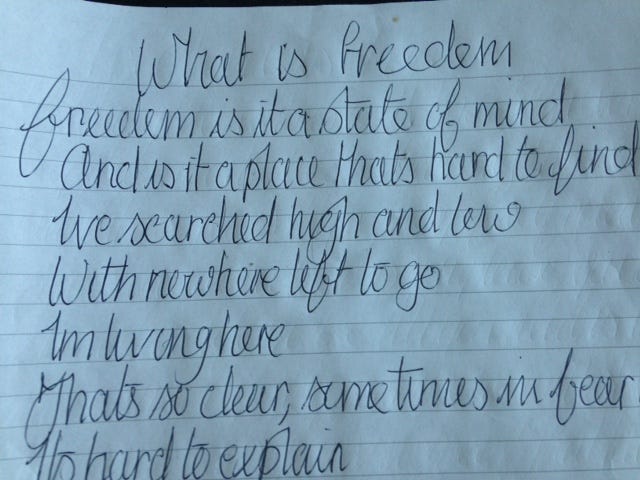 What is freedom
freedom is it a state of mind
And is it a place thats hard to find
Ive searched high and low
With nowhere left to go
Im living here
thats so clear, sometimes in fear
Its hard to explain